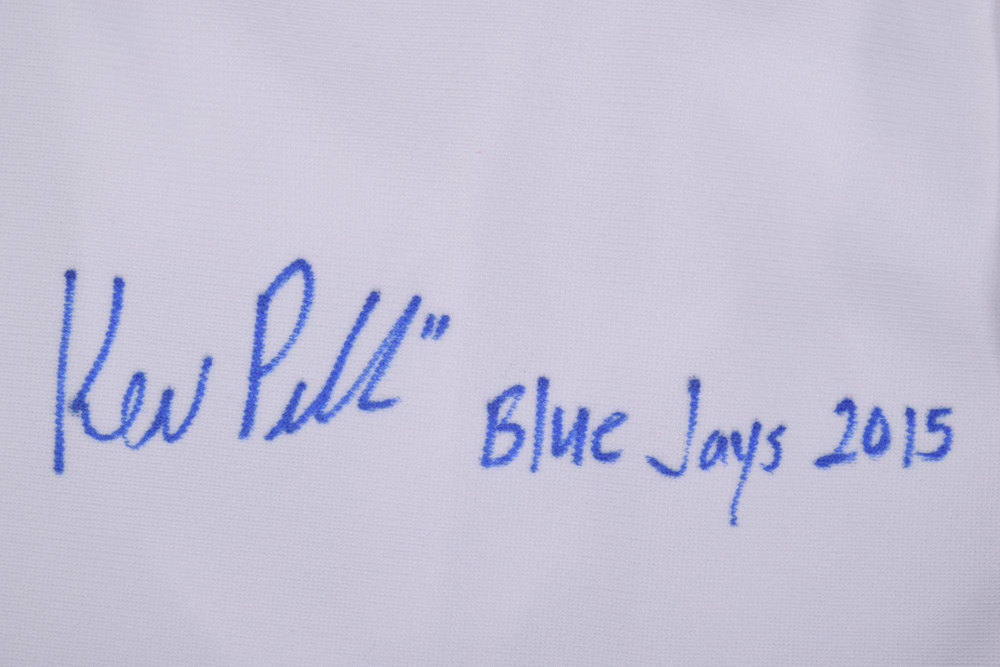 Kev Pill" Blue Jays 2015